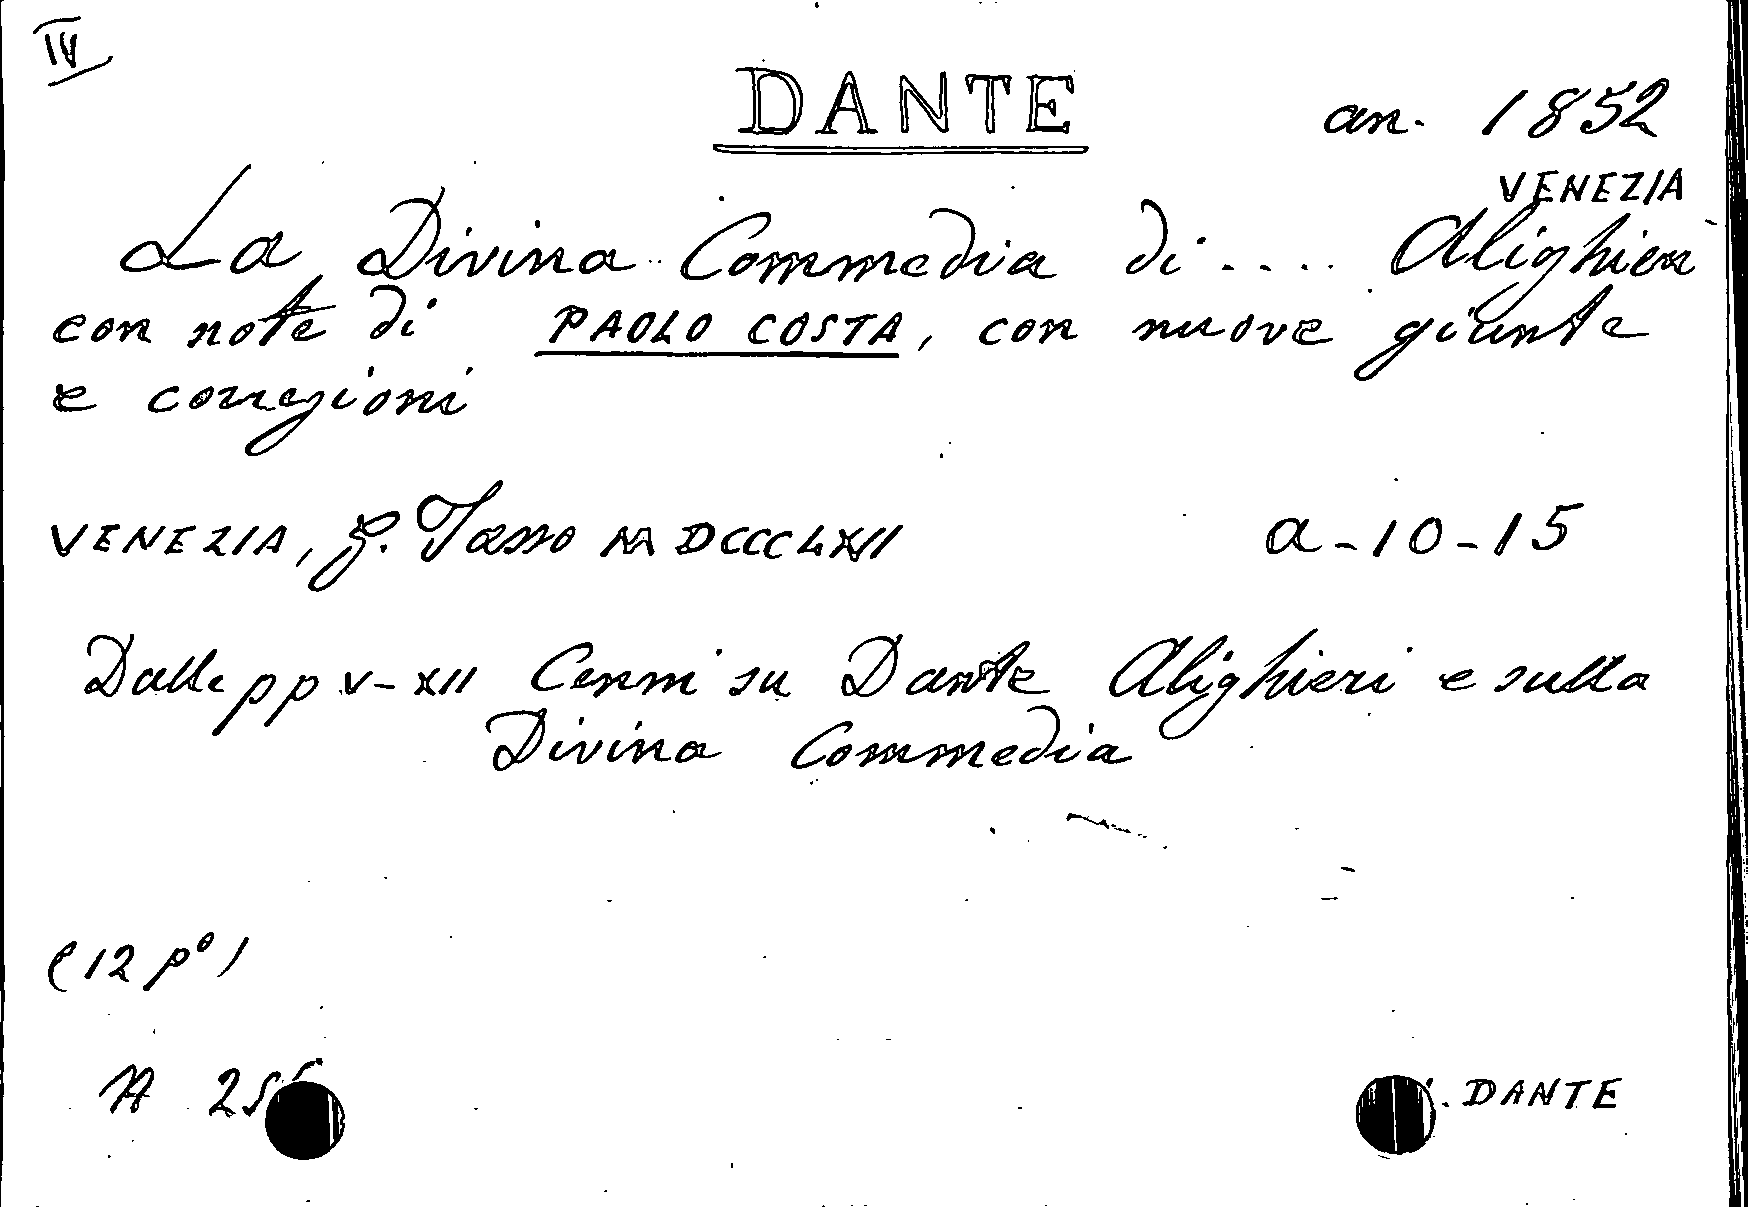 IV
DANTE
an. 1852
VENEZIA
La Divina Commedia di .... Alighieri
con note di PAOLO COSTA, con nuove giunte
e correzioni
VENEZIA, G. Tasso MDCCCLXII a-10-15
Dalle pp v-XII Cenni su Dante Alighieri e sulla
Divina Commedia
(12 pº)
A DANTE